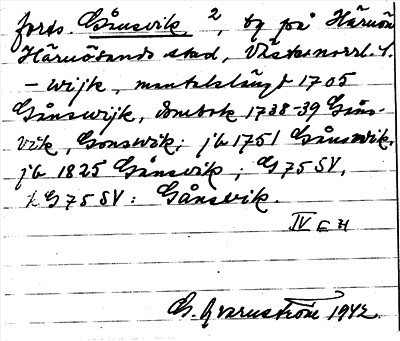 forts. Gånsvik 2, by på Härnön
Härnösands stad, Västernorrl. l.
- wijk, mantalslängd 1705
Gånswijk, dombok 1738-39 Gåns-
vik, Gonswik; jb 1751 Gånswik,
jb 1825 Gånsvik; G75SV,
G75SV: Gånsvik.
IV E H
G. Qvarnström 1942.